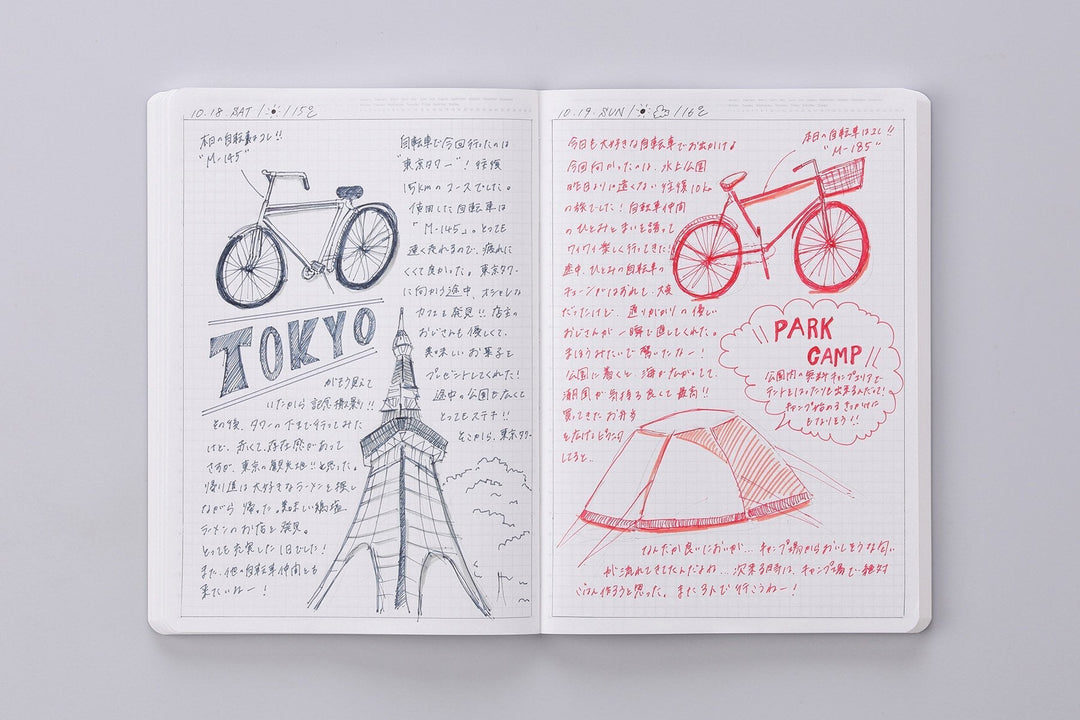 10.18 SAT / ☀ / 15℃
本日の自転車はコレ!!
"M-145"
自転車で今回行ったのは
"東京タワー"! 往復
15kmのコースでした。
使用した自転車は
「M-145」。とっても
速く走れるので、疲れに
くくて良かった。東京タワー
に向かう途中、オシャレな
カフェを発見!! 店主の
おじさんも優しくて、
美味しいお菓子を
プレゼントしてくれた!
途中の公園も
とってもステキ!!
そこから、東京タワー
TOKYO
がもう見えて
いたから 記念撮影!!
その後、タワーの下まで行ってみた
けど、赤くて、存在感があって
さすが、東京の観光地!!と思った。
帰り道は大好きなラーメンを探し
ながら帰った。美味しい
ラーメンのお店を発見。
とっても充実した1日でした!
また、他の自転車仲間とも
来たいねー!
10.19. SUN / 16℃
今日も大好きな自転車でお出かけ♪
今回向かったのは、水上公園
昨日よりは遠くない 往復10km
の旅でした! 自転車仲間
のひとみとまいを誘って
ワイワイ楽しく行ってきた!
途中、ひとみの自転車の
チェーンがはずれて、大変
だったけど、通りがかりの優しい
おじさんが一瞬で直してくれた。
まほうみたいで驚いたなー!
公園に着くと、海がながって、
潮風が気持ち良くて最高!!
買ってきたお弁当
を広げてピクニック
してると、
本日の自転車はコレ!!
"M-185"
PARK
CAMP
公園内の無料キャンプエリアで
テントをはったりも出来るんだって!
キャンプ始めるきっかけに
もなりそう!!
なんだか良いにおいが… キャンプ場からおいしそうな匂い
が流れてきてたんだよね… 次来る時は、キャンプ場で絶対
ごはん作ろうと思った。また3人で行こうねー!